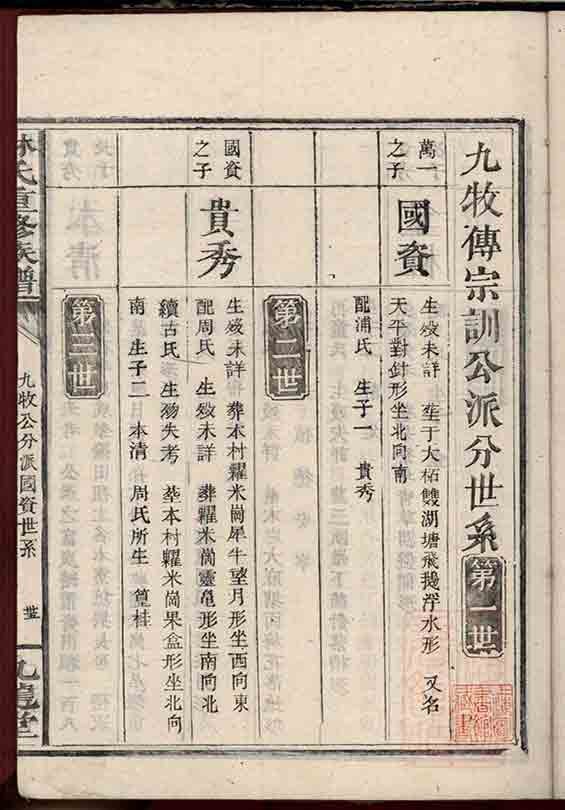 九牧傳宗訓公派分世系 第一世
萬一之子
國資
生歿未詳 塟于大柘雙湖塘飛鵝浮水形 又名
天平對針形坐北向南
配浦氏 生子一 貴秀
第二世
國資之子
貴秀
生歿未詳 葬本村糶米崗犀牛望月形坐西向東
配周氏 生歿未詳 葬糶米崗靈龜形坐南向北
續古氏 生歿失考 塟本村糶米崗果盒形坐北向
南 生子二 本清 周氏所生 篁桂
第三世
林氏重修族譜
九牧公分派國資世系
九龍堂